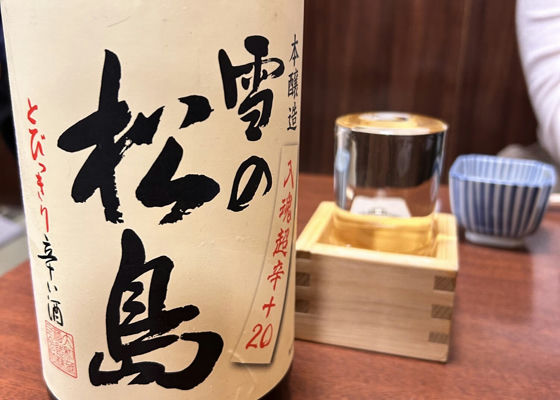 本醸造
雪の
松島
入魂超辛+20
とびっきり辛い酒